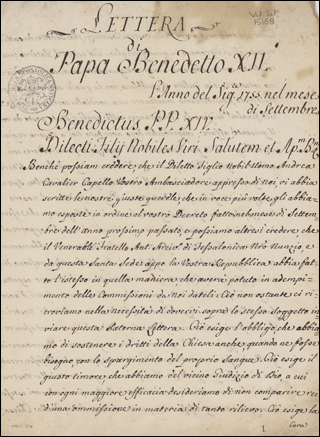 Lettera
di
Papa Benedetto XII.
L'Anno del Sig.re 1755. nel mese
di Settembre
Benedictus P.P. XIV.
Dilecti Filij Nobiles Viri Salutem et Ap.m
Benchè possiam credere, che il Diletto Figlio Nobil Uomo Andrea
Cavalier Capello Vostro Ambasciadore appresso di Noi, vi abbia
scritti le nostri giuste querele, che in voce più volte gli abbia-
mo esposte in ordine al vostro Decreto fatto nel mese di Settem-
bre dell'anno prossimo passato, e possiamo altresi credere, che
il Venerabile Fratello Ant. Arciv.o di Tessalonica Nro Nunzio, e
da questa Santa Sede appo la Vostra Repubblica abbia fat-
to l'istesso in quella maniera che averà potuto in adempi-
mento delle Commissioni da Noi dateli: Ciò non ostante ci ri-
troviamo nella Necessità di dovervi sopra lo stesso Soggetto in-
viare questa Paterna Lettera. Ciò esige l'obbligo, che abbia-
mo di sostenere i dritti della Chiesa anche quando ne fosse
bisogno con lo spargimento del proprio Sangue. Ciò esige il
giusto timore che abbiamo del vicino Giudizio di Dio, a cui
con ogni maggiore efficacia desideriamo di non comparire rei
di una ommissione in materia di tanto rilievo. Ciò esige la
1
Cura